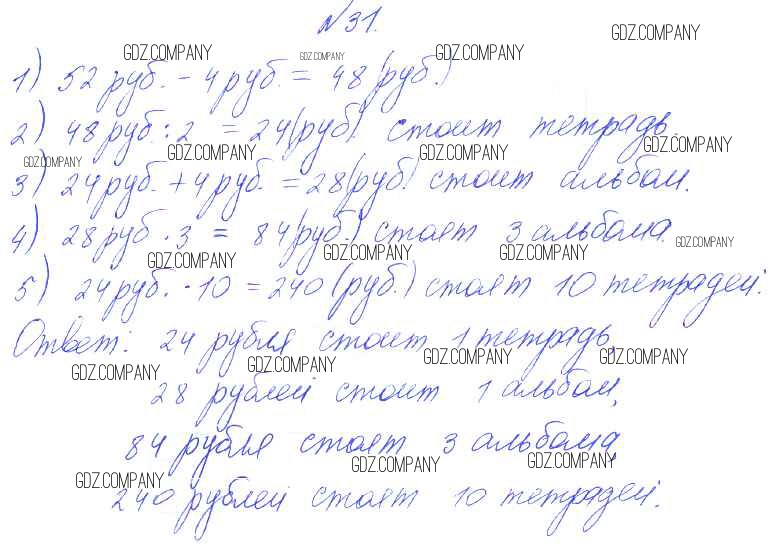 №31.
GDZ.COMPANY GDZ.COMPANY GDZ.COMPANY GDZ.COMPANY
1) 52 руб. - 4 руб. = 48 (руб.)
2) 48 руб. : 2 = 24 (руб.) стоит тетрадь.
GDZ.COMPANY GDZ.COMPANY GDZ.COMPANY GDZ.COMPANY
3) 24 руб. + 4 руб. = 28 (руб.) стоит альбом.
4) 28 руб. · 3 = 84 (руб.) стоят 3 альбома.
GDZ.COMPANY GDZ.COMPANY GDZ.COMPANY GDZ.COMPANY
5) 24 руб. · 10 = 240 (руб.) стоят 10 тетрадей.
Ответ: 24 рубля стоит 1 тетрадь,
GDZ.COMPANY GDZ.COMPANY GDZ.COMPANY GDZ.COMPANY
28 рублей стоит 1 альбом,
84 рубля стоят 3 альбома,
GDZ.COMPANY GDZ.COMPANY GDZ.COMPANY
240 рублей стоят 10 тетрадей.